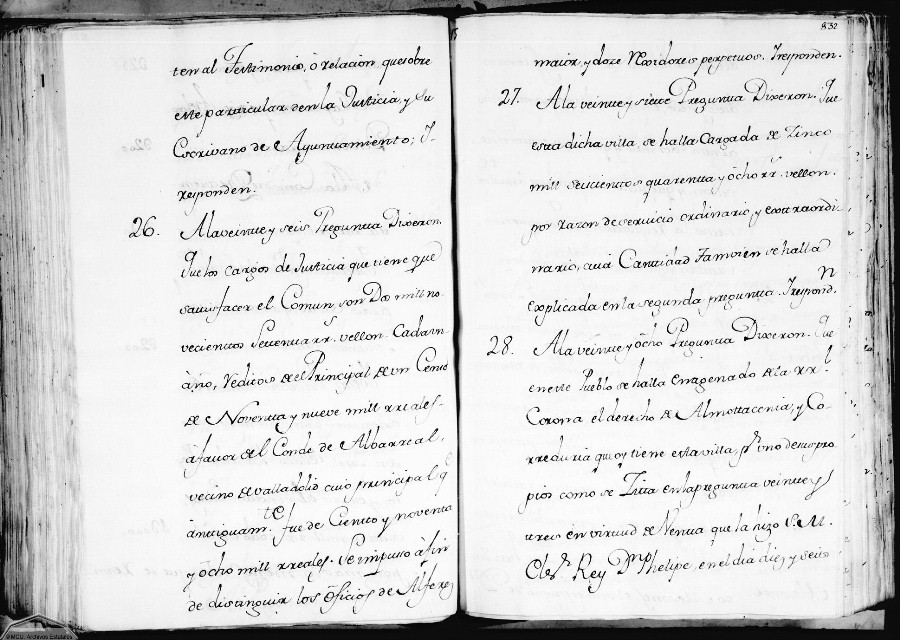 ten al Testimonio, ò relacion, que sobre
este particular den la Justicia, y su
Escrivano de el Ayuntamiento; Y
responden.
26. A la veinte y seis Pregunta Dixeron.
Que los cargos de Justicia que tiene que
satisfacer el Comun, son Dos mill no
vecientos Settenta rr.s vellon. Cada un
año, Reditos de el Principal de un Censo
de Noventa y nueve mill rreales-
à favor del Conde de Albarreal,
vecino de valladolid cuio principal q.e
antiguam.te fue de Ciento y noventa
y ôcho mill rreales. Se impuso à fin
de distinguir los ôficios de Alferez
832
maior, y doze Rexidores perpetuos. Y responden.
27. A la veinte y siete Pregunta Dixeron. Que
esta dicha villa, se halla Cargada de Zinco
mill seiscientos quarenta y ôcho rr.s vellon.
por razon de servicio ordinario, y extraordi
nario, cuia Cantidad Tamvien se halla
explicada en la segunda pregunta. Y respond.n
28. A la veinte y ôcho Pregunta Dixeron. Que
en este Pueblo se halla enagenado de la rr.l
Corona el derecho de Almottacenia, y Co-
rreduria que oy tiene esta villa, p.r uno de sus pro
pios como se Zitta en la pregunta veinte y
tres en virtud de Venta que la hizo S. M.
el S.r Rey D.n Phelipe, en el dia diez y seis
©MCU. Archivos Estatales